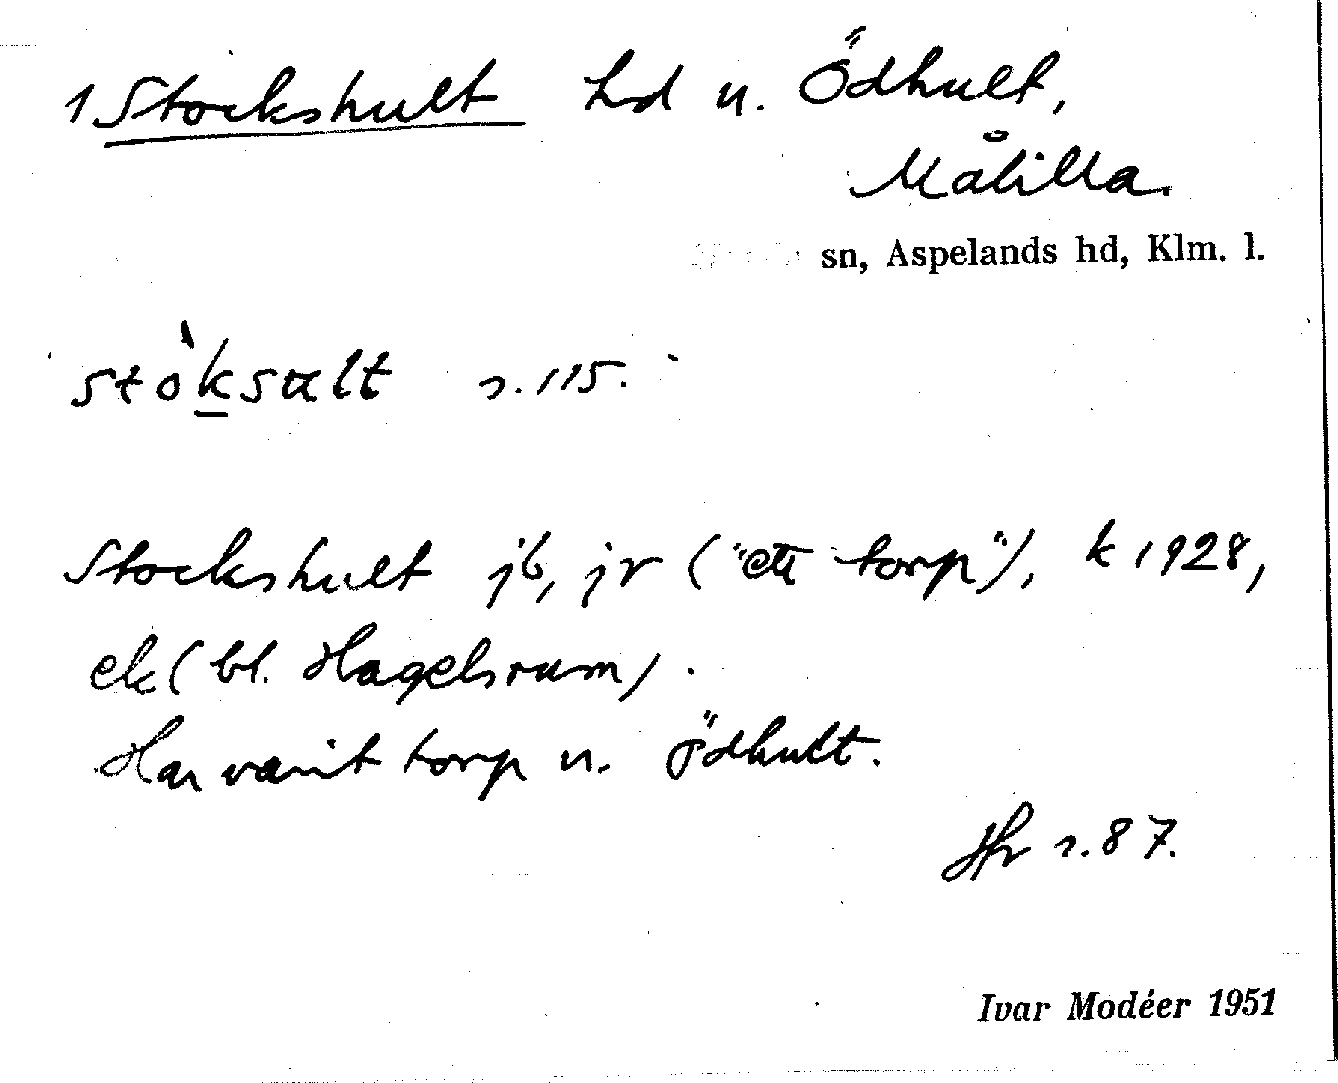 1 Stockshult hd u. Ödhult,
Målilla
sn, Aspelands hd, Klm. l.
stòksult s. 115.
Stockshult jb, jr ("ett torp"), k 1928,
ek (bl. Hagelsrum).
Har varit torp u. Ödhult.
Hr s. 87.
Ivar Modéer 1951